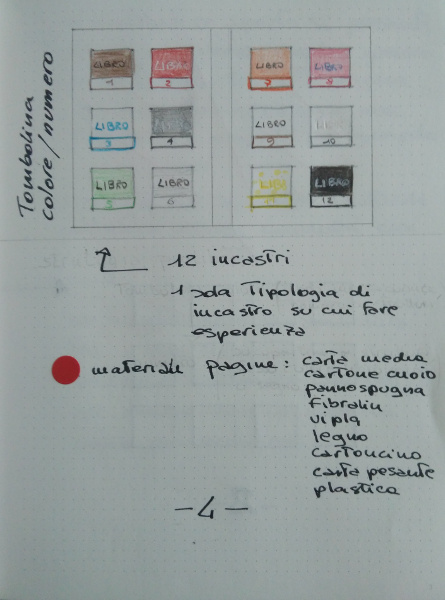 Tombolina
colore/numero
LIBRO LIBRO LIBRO LIBRO
1 2 7 8
LIBRO LIBRO LIBRO
3 4 9 10
LIBRO LIBRO LIBRO LIBRO
5 6 12
12 incastri
1 sola Tipologia di
incastro su cui fare
esperienza
materiale pagine: carta media
cartone cuoio
pannospugna
fibralin
vipla
legno
cartoncino
carta pesante
plastica
-4-